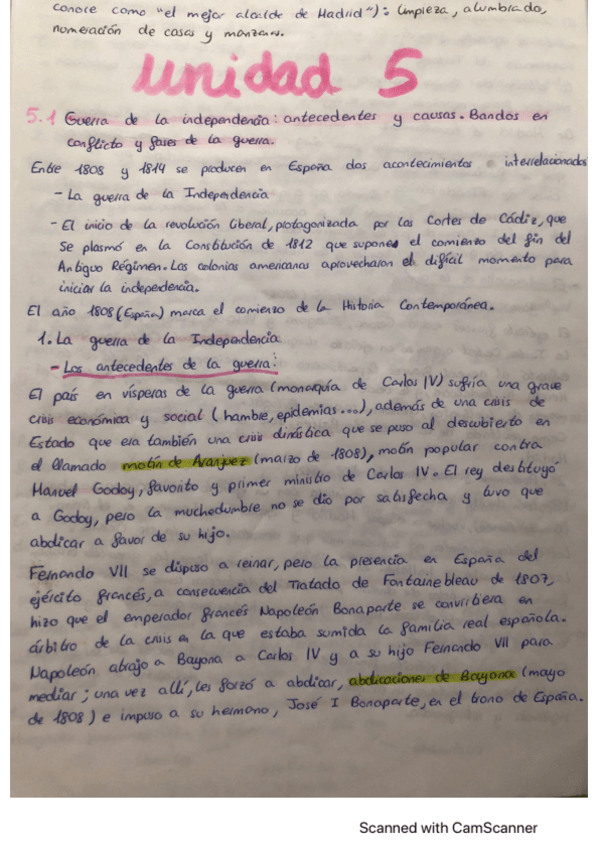 conoce como "el mejor alcalde de Madrid"): limpieza, alumbrado,
numeración de casas y manzanas.
Unidad 5
5.1 Guerra de la independencia: antecedentes y causas. Bandos en
conflicto y fases de la guerra.
Entre 1808 y 1814 se producen en España dos acontecimientos interrelacionados
- La guerra de la Independencia
- El inicio de la revolución liberal, protagonizada por las Cortes de Cádiz, que
se plasmó en la Constitución de 1812 que supone el comienzo del fin del
Antiguo Régimen. Las colonias americanas aprovecharon el difícil momento para
iniciar la independencia.
El año 1808 (España) marca el comienzo de la Historia Contemporánea.
1. La guerra de la Independencia
- Los antecedentes de la guerra:
El país en vísperas de la guerra (monarquía de Carlos IV) sufría una grave
crisis económica y social (hambre, epidemias...), además de una crisis de
Estado que era también una crisis dinástica que se puso al descubierto en
el llamado motín de Aranjuez (marzo de 1808), motín popular contra
Manuel Godoy, favorito y primer ministro de Carlos IV. El rey destituyó
a Godoy, pero la muchedumbre no se dio por satisfecha y tuvo que
abdicar a favor de su hijo.
Fernando VII se dispuso a reinar, pero la presencia en España del
ejército francés, a consecuencia del Tratado de Fontainebleau de 1807,
hizo que el emperador francés Napoleón Bonaparte se convirtiera en
árbitro de la crisis en la que estaba sumida la familia real española.
Napoleón atrajo a Bayona a Carlos IV y a su hijo Fernando VII para
mediar; una vez allí, les forzó a abdicar, abdicaciones de Bayona (mayo
de 1808) e impuso a su hermano, José I Bonaparte, en el trono de España.
Scanned with CamScanner